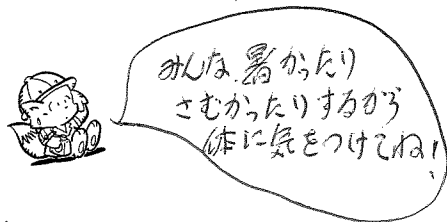 みんな、暑かったり
さむかったりするから
体に気をつけてね!